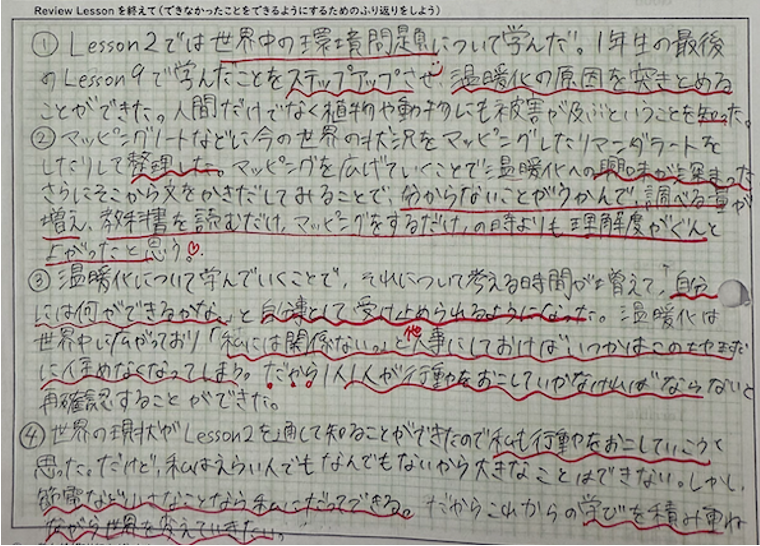 Review Lesson を終えて（できなかったことをできるようにするためのふり返りをしよう）
① Lesson2では世界中の環境問題について学んだ。1年生の最後
のLesson9で学んだことをステップアップさせ、温暖化の原因を突きとめる
ことができた。人間だけでなく植物や動物にも被害が及ぶということを知った。
② マッピングノートなどに今の世界の状況をマッピングしたりマンダラートを
したりして整理した。マッピングを広げていくことで温暖化への興味が深まった
さらにそこから文をかきだしてみることで、分からないことがうかんで、調べる量が
増え、教科書を読むだけ、マッピングをするだけ、の時よりも理解度がぐんと
上がったと思う♡.
③ 温暖化について学んでいくことで、それについて考える時間が増えて、「自分
には何ができるかな」と自分事として受け止められるようになった。温暖化は
世界中に広がっており「私には関係ない。」と他人事にしておけば、いつかはこの地球
に住めなくなってしまう。だから1人1人が行動をおこしていかなければならないと
再確認することができた。
④ 世界の現状がLesson2を通して知ることができたので私も行動をおこしていこうと
思った。だけど、私はえらい人でもなんでもないから大きなことはできない。しかし、
節電など小さなことなら私にだってできる。だからこれからの学びを積み重ね
ながら世界を変えていきたい。